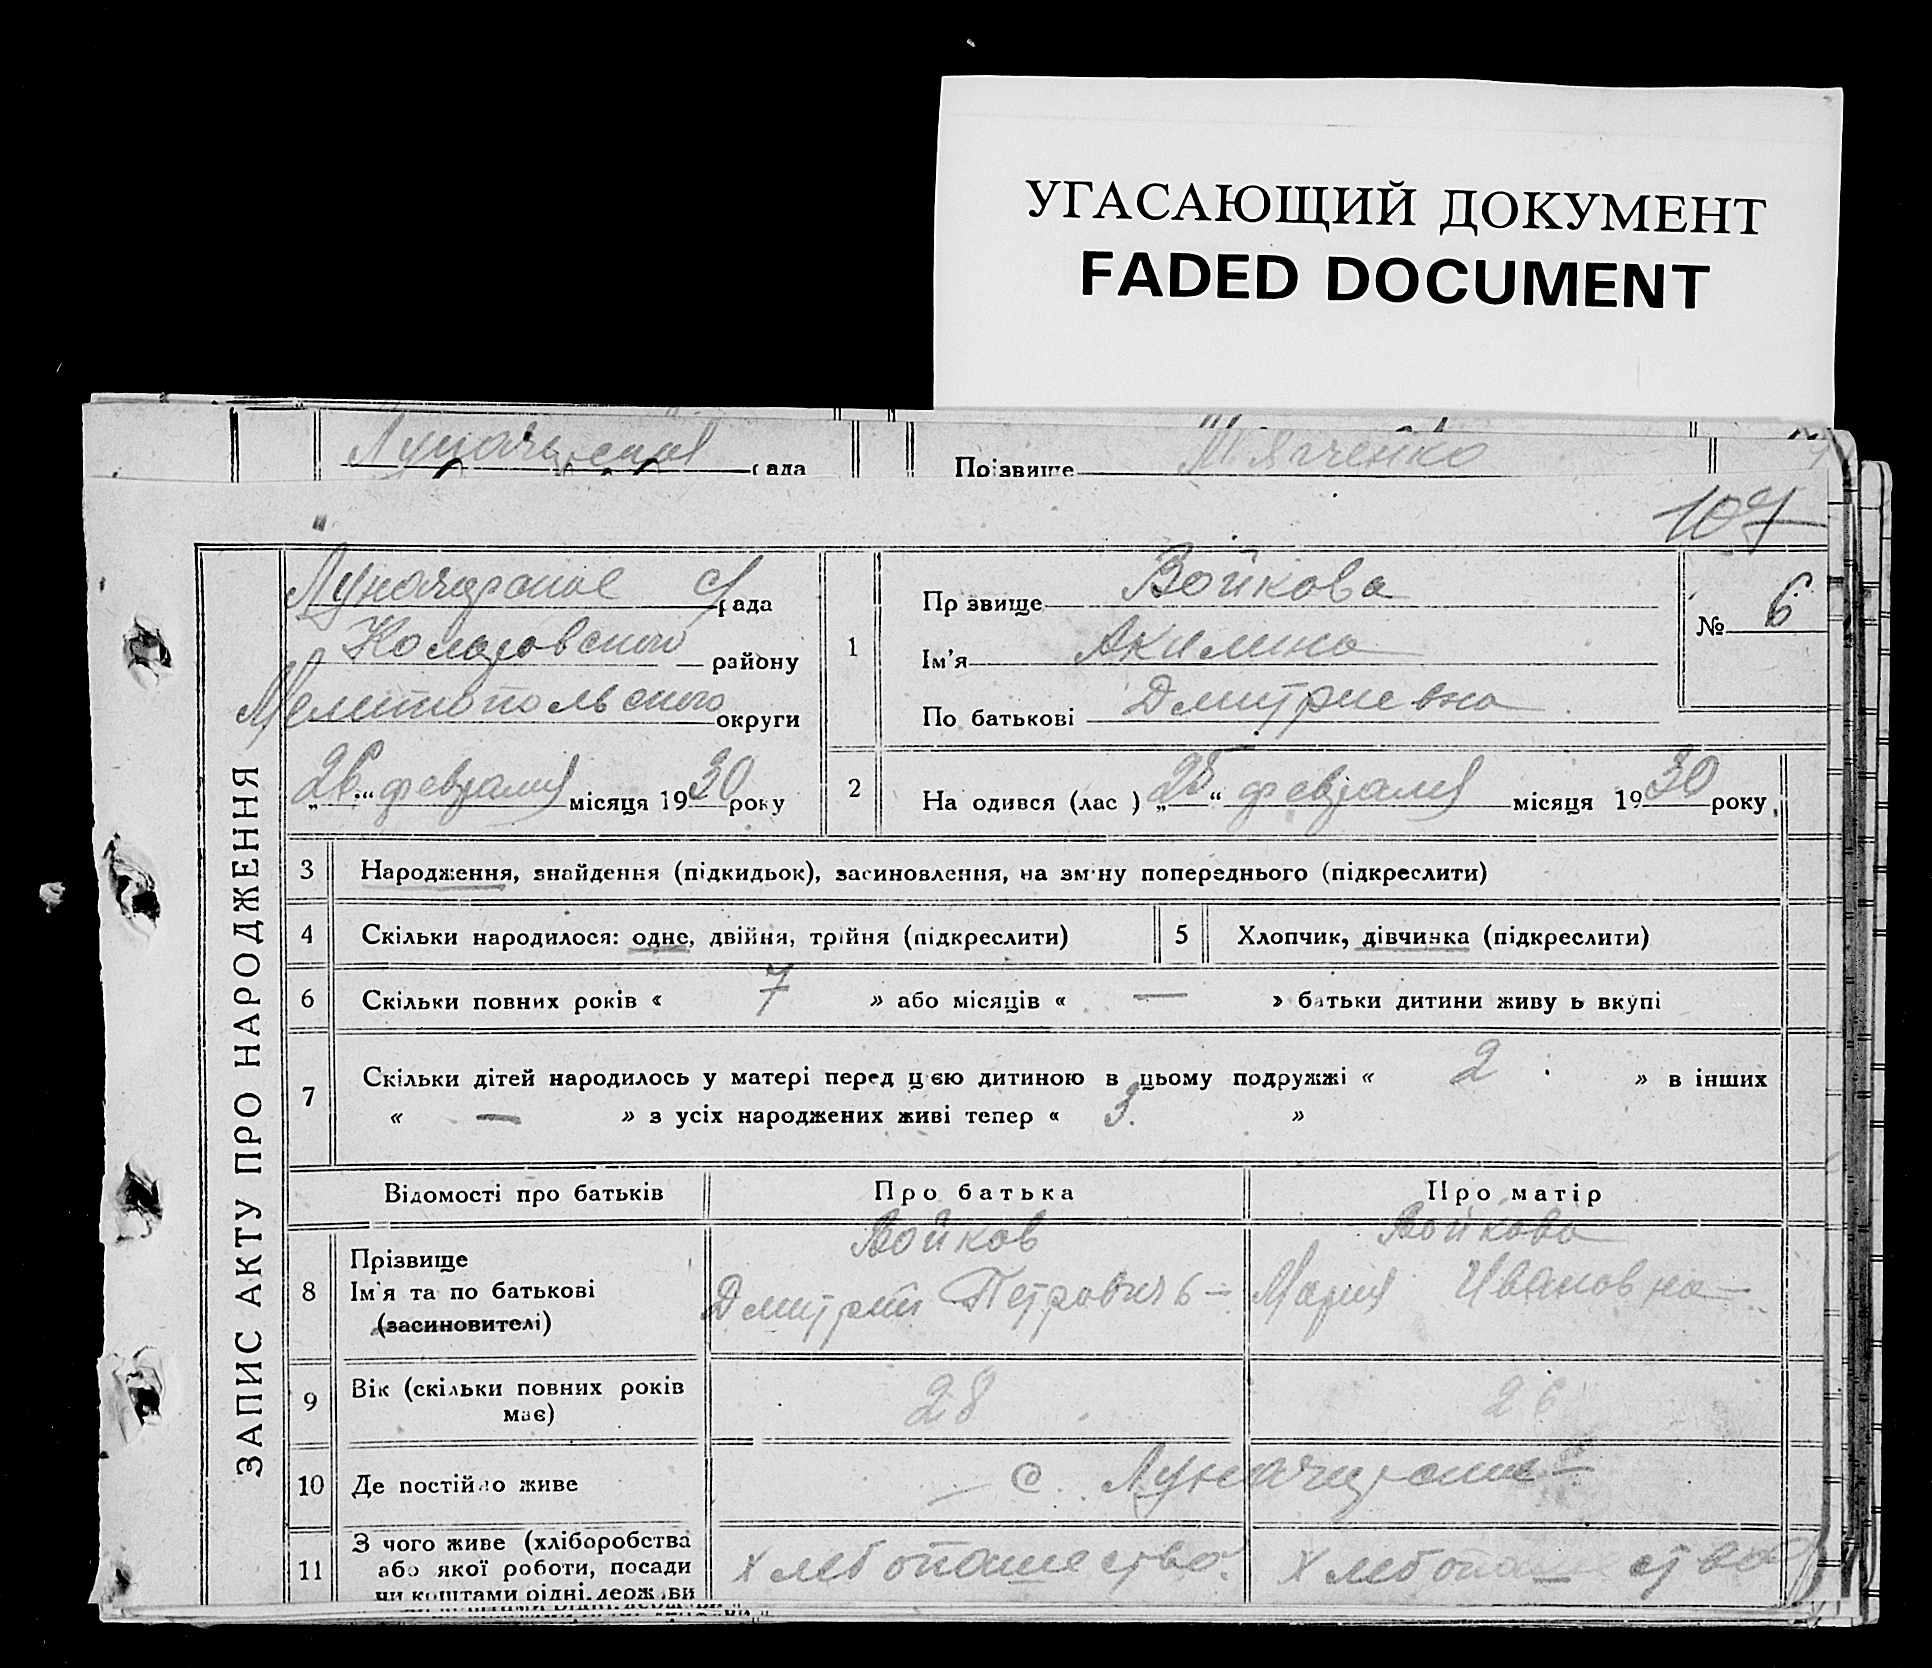 УГАСАЮЩИЙ ДОКУМЕНТ
FADED DOCUMENT
рада
Прізвище Дяченко
107
ЗАПИС АКТУ ПРО НАРОДЖЕННЯ
Луначарское с/рада
Коларовского району
Мелитопольского округи
„26“ февраля місяця 1930 року
1
Пр звище Войкова
Ім’я Акилина
По батькові Дмитриевна
№ 6
2
На одився (лас ) „25“ февраля місяця 1930 року
3 Народження, знайдення (підкидьок), засиновлення, на зм ну попереднього (підкреслити)
4 Скільки народилося: одне, двійня, трійня (підкреслити)
5 Хлопчик, дівчинка (підкреслити)
6 Скільки повних років « 7 » або місяців « — » батьки дитини живу ь вкупі
7 Скільки дітей народилось у матері перед цією дитиною в цьому подружжі « 2 » в інших
« — » з усіх народжених живі тепер « 3 »
Відомості про батьків
Про батька
Про матір
8
Прізвище
Ім’я та по батькові
(засиновителі)
Войков
Дмитрий Петрович
Войкова
Мария Ивановна
9
Вік (скільки повних років
має)
28
26
10 Де постійно живе
с. Луначарское
11
З чого живе (хліборобства
або якої роботи, посади
чи коштами рідні, держ ви
Хлебопашество
Хлебопашество